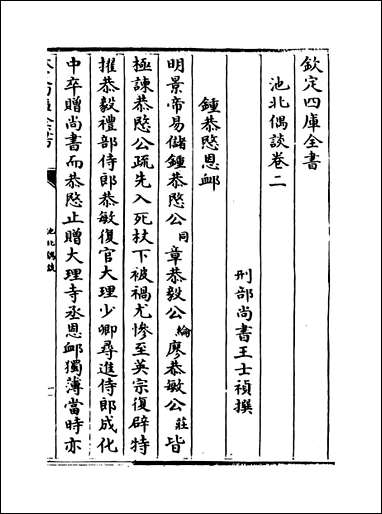 欽定四庫全書
池北偶談卷二
刑部尚書王士禎撰
鍾恭愍恩卹
明景帝易儲鍾恭愍公同章恭毅公綸廖恭敏公莊皆
極諫恭愍公疏先入死杖下被禍尤慘至英宗復辟特
擢恭毅禮部侍郎恭敏復官大理少卿尋進侍郎成化
中卒贈尚書而恭愍止贈大理寺丞恩卹獨薄當時亦
池北偶談
一